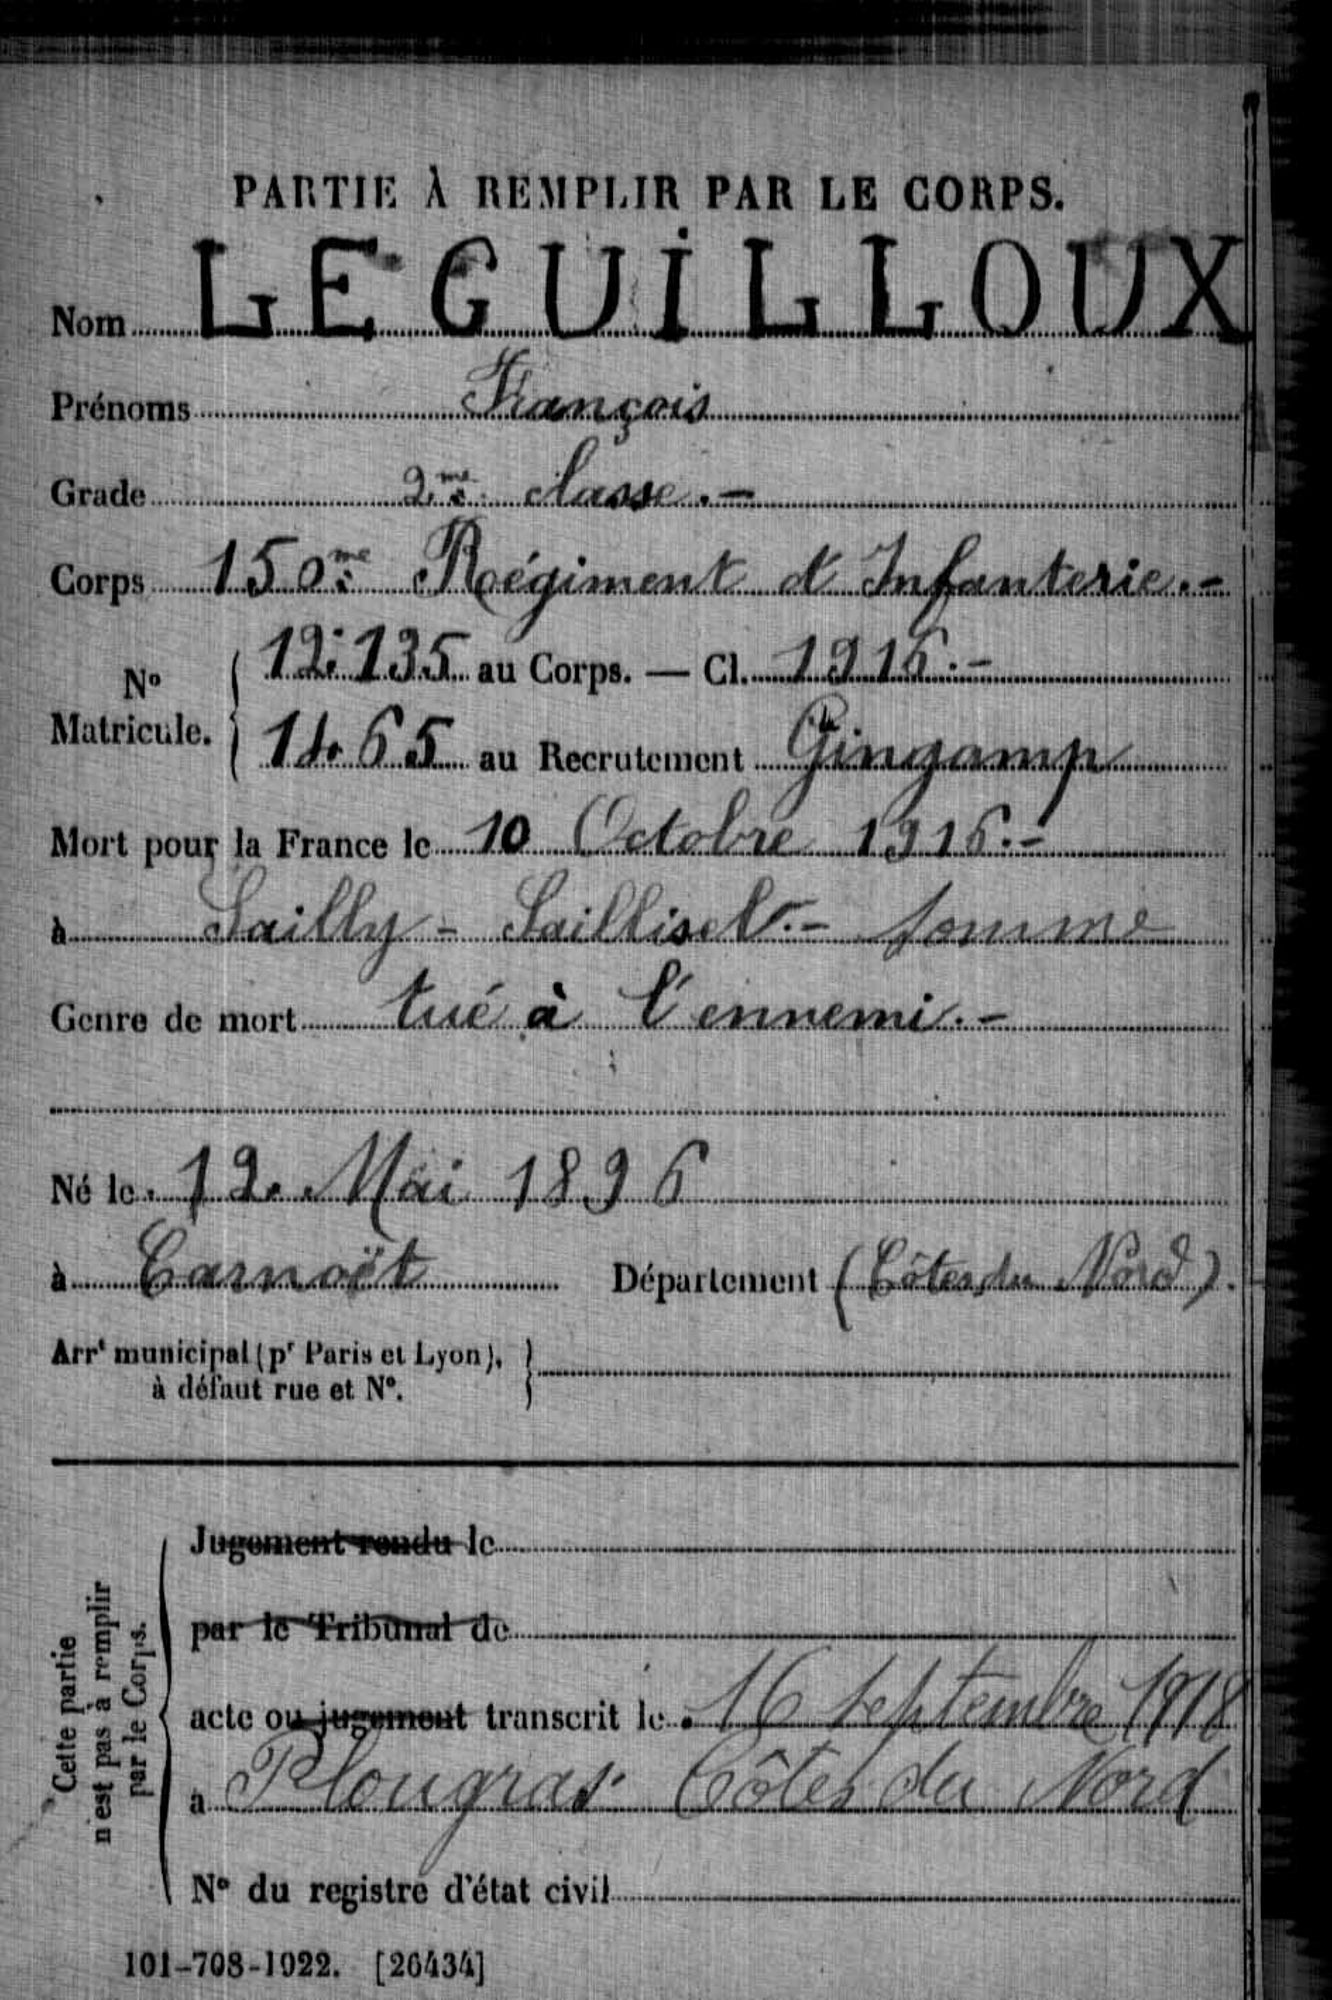 PARTIE À REMPLIR PAR LE CORPS.
Nom LEGUILLOUX
Prénoms François
Grade 2me classe.-
Corps 150me Régiment d'Infanterie.-
No Matricule. 12.135 au Corps. — Cl. 1916.-
1465 au Recrutement Gingamp
Mort pour la France le 10 Octobre 1916.-
à Sailly - Saillisel.- Somme
Genre de mort tué à l'ennemi.-
Né le 12 Mai 1896
à Carnoët Département (Côtes du Nord).
Arrt municipal (pr Paris et Lyon), à défaut rue et No.
Cette partie n'est pas à remplir par le Corps.
Jugement rendu le
par le Tribunal de
acte ou jugement transcrit le 16 septembre 1918
à Plougras Côtes du Nord
No du registre d'état civil
101-708-1922. [26434]